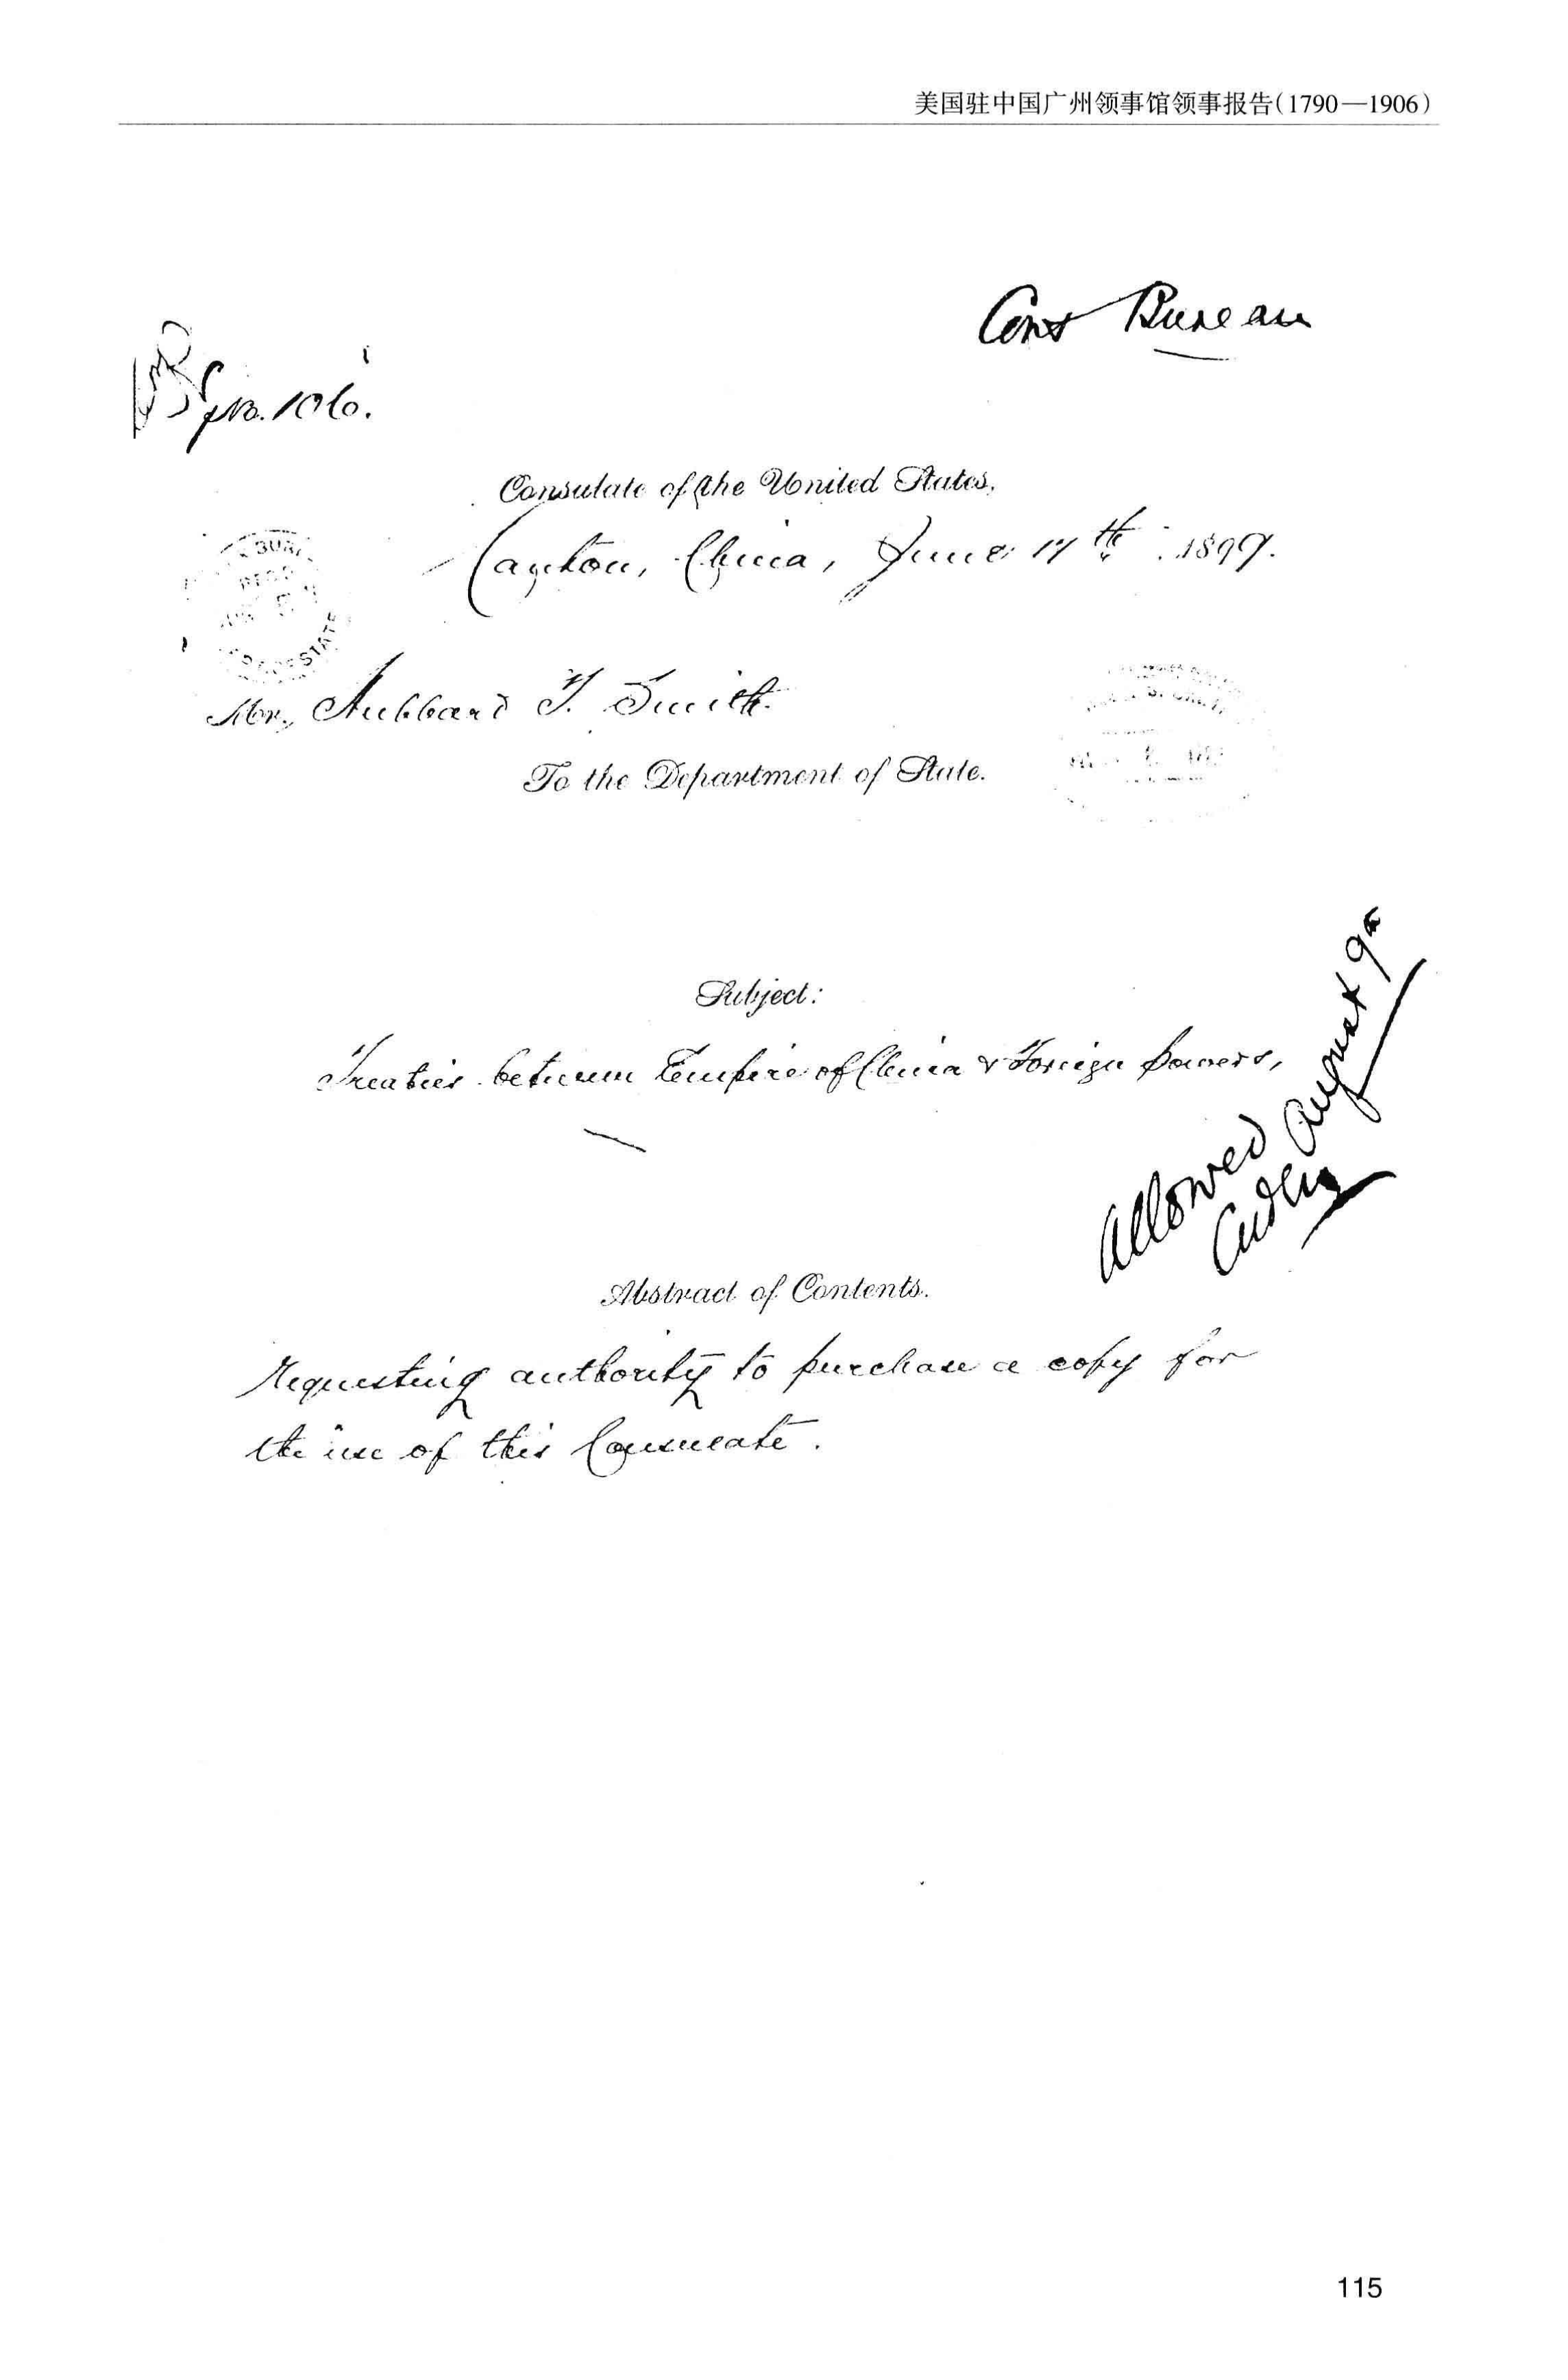 美国驻中国广州领事馆领事报告(1790—1906)
Cons Bureau
No. 106.
Consulate of the United States,
Canton, China, June 17th 1899.
Mr. Hubbard T. Smith
To the Department of State.
Subject:
Treaties between Empire of China & Foreign Powers,
Allowed August 9
Abstract of Contents.
Requesting authority to purchase a copy for
the use of this Consulate.
115